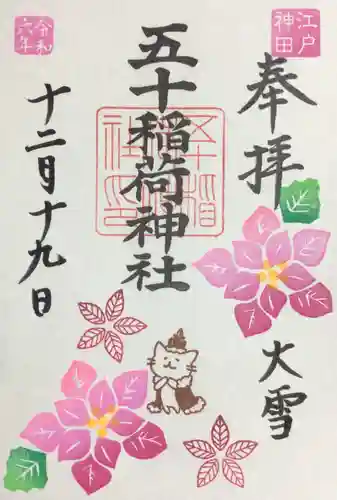 江戸
神田
奉拝
大雪
五十稲荷神社
令和
六年
十二日十九日